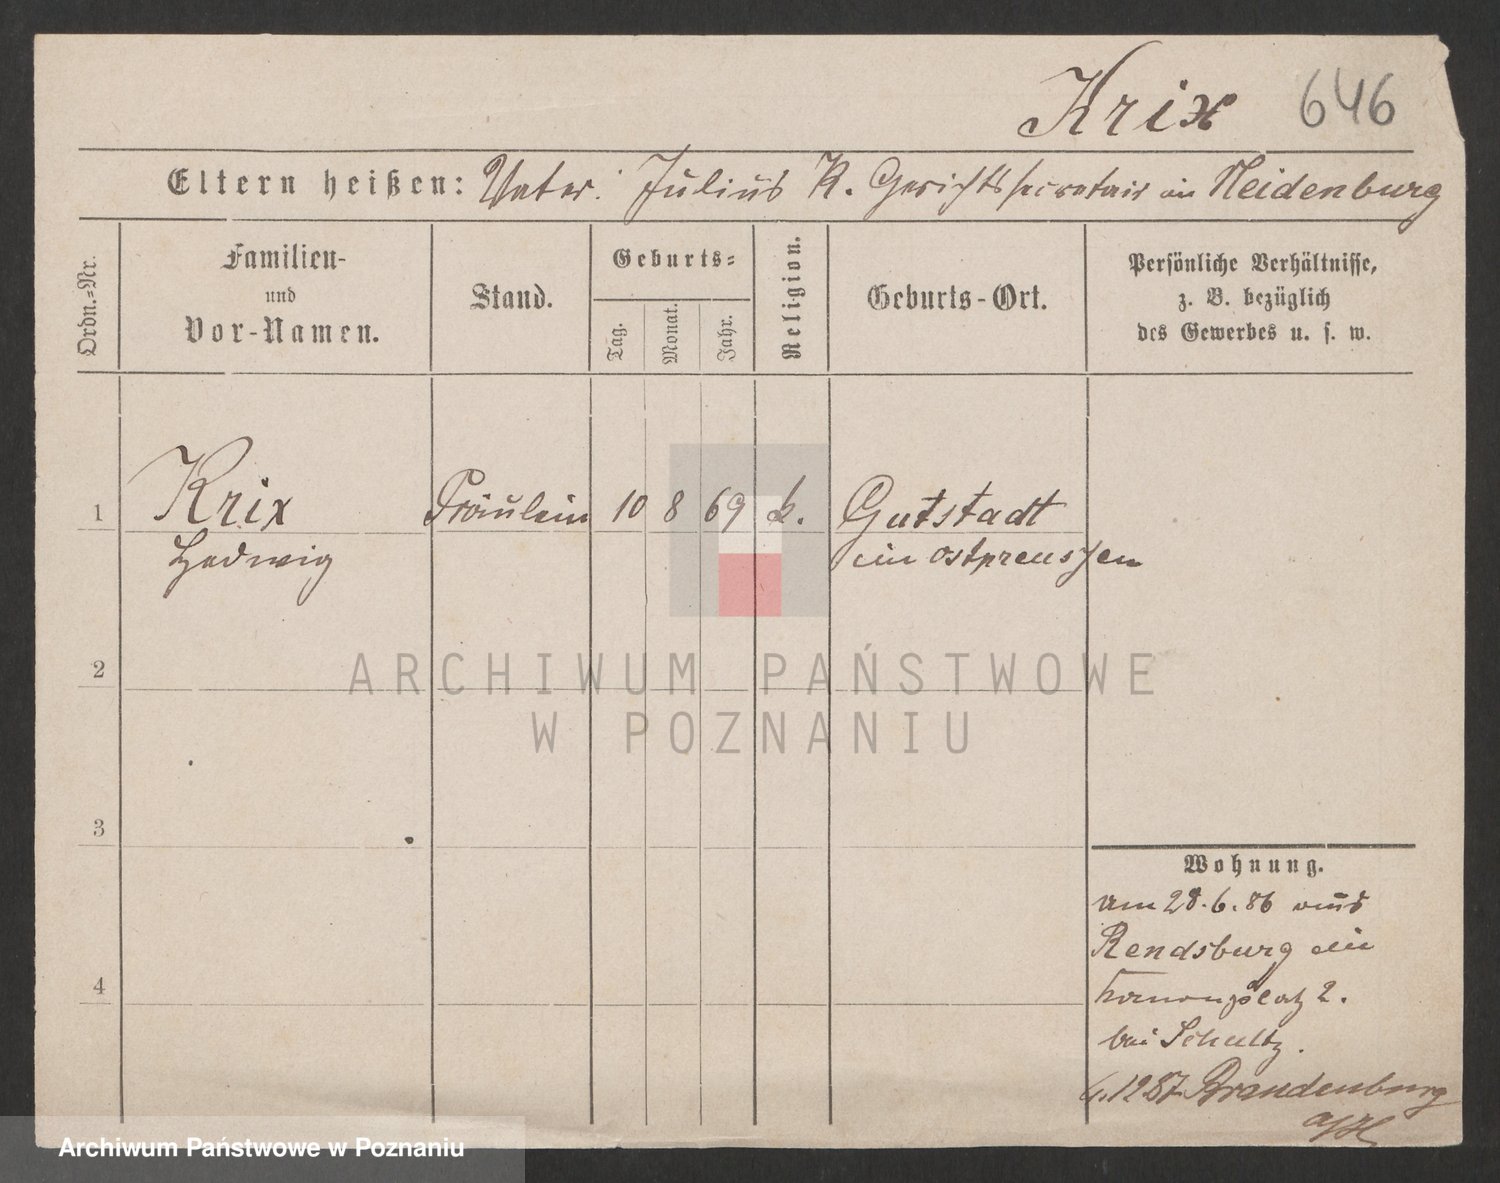 Krix 646
Eltern heißen: Vater: Julius K. Gerichtssecretair in Neidenburg
Ordn.=Nr.
Familien-
und
Vor-Namen.
Stand.
Geburts=
Tag.
Monat.
Jahr.
Religion.
Geburts-Ort.
Persönliche Verhältnisse,
z. B. bezüglich
des Gewerbes u. s. w.
1 Krix Fräulein 10 8 69 k. Gutstadt
Hedwig in Ostpreussen
2
ARCHIWUM PAŃSTWOWE
W POZNANIU
3
Wohnung.
am 28.6.86 aus
Rendsburg in
4
Kanonenplatz 2.
bei Schultz.
87 Brandenburg
a/H
Archiwum Państwowe w Poznaniu